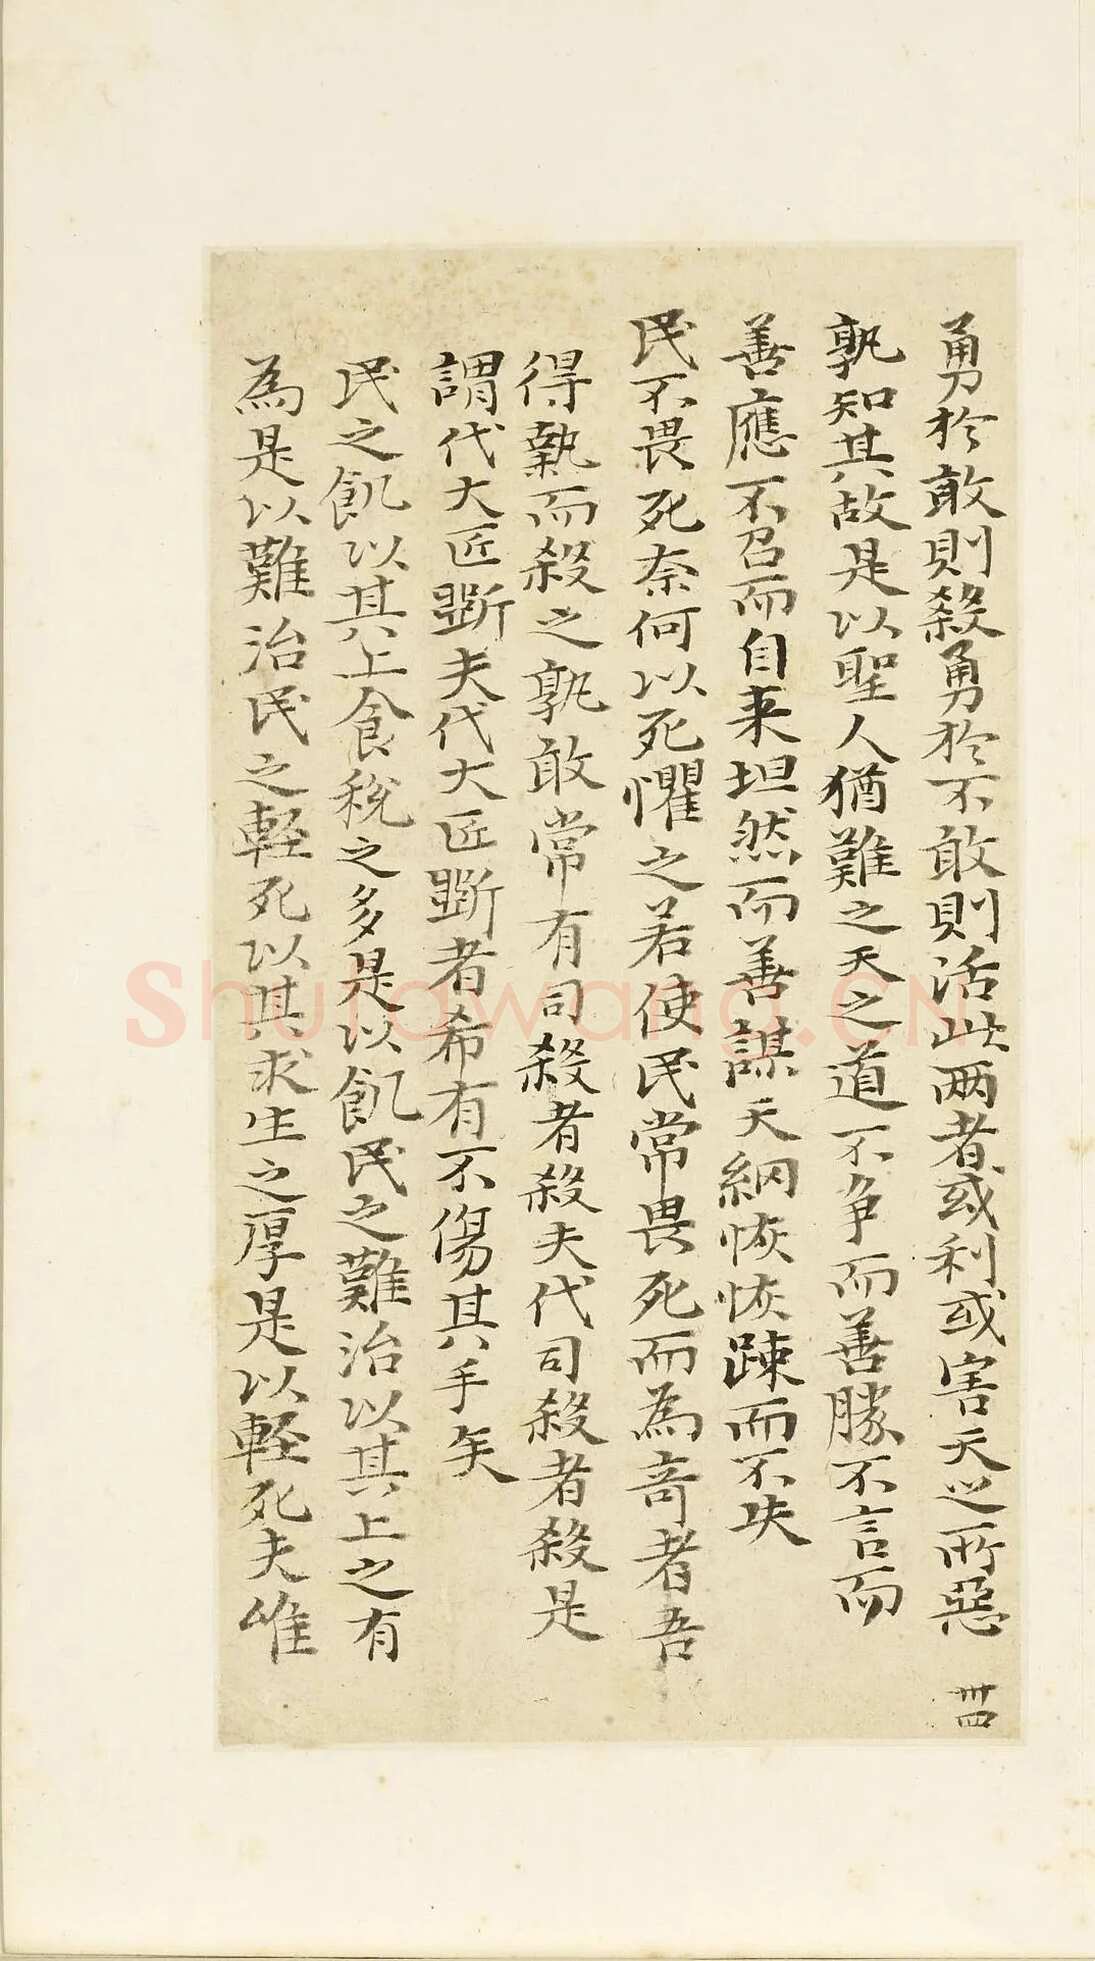 勇於敢則殺勇於不敢則活此两者或利或害天之所惡
孰知其故是以聖人猶難之天之道不争而善勝不言而
善應不召而自来坦然而善謀天網恢恢踈而不失
民不畏死奈何以死懼之若使民常畏死而為竒者吾
得執而殺之孰敢常有司殺者殺夫代司殺者殺是
謂代大匠斵夫代大匠斵者希有不傷其手矣
民之飢以其上食稅之多是以飢民之難治以其上之有
為是以難治民之輕死以其求生之厚是以輕死夫唯
卌四
Shufawang.CN